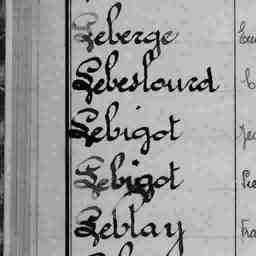 Leberge
Lebeslourd
Lebigot
Lebigot
Leblay